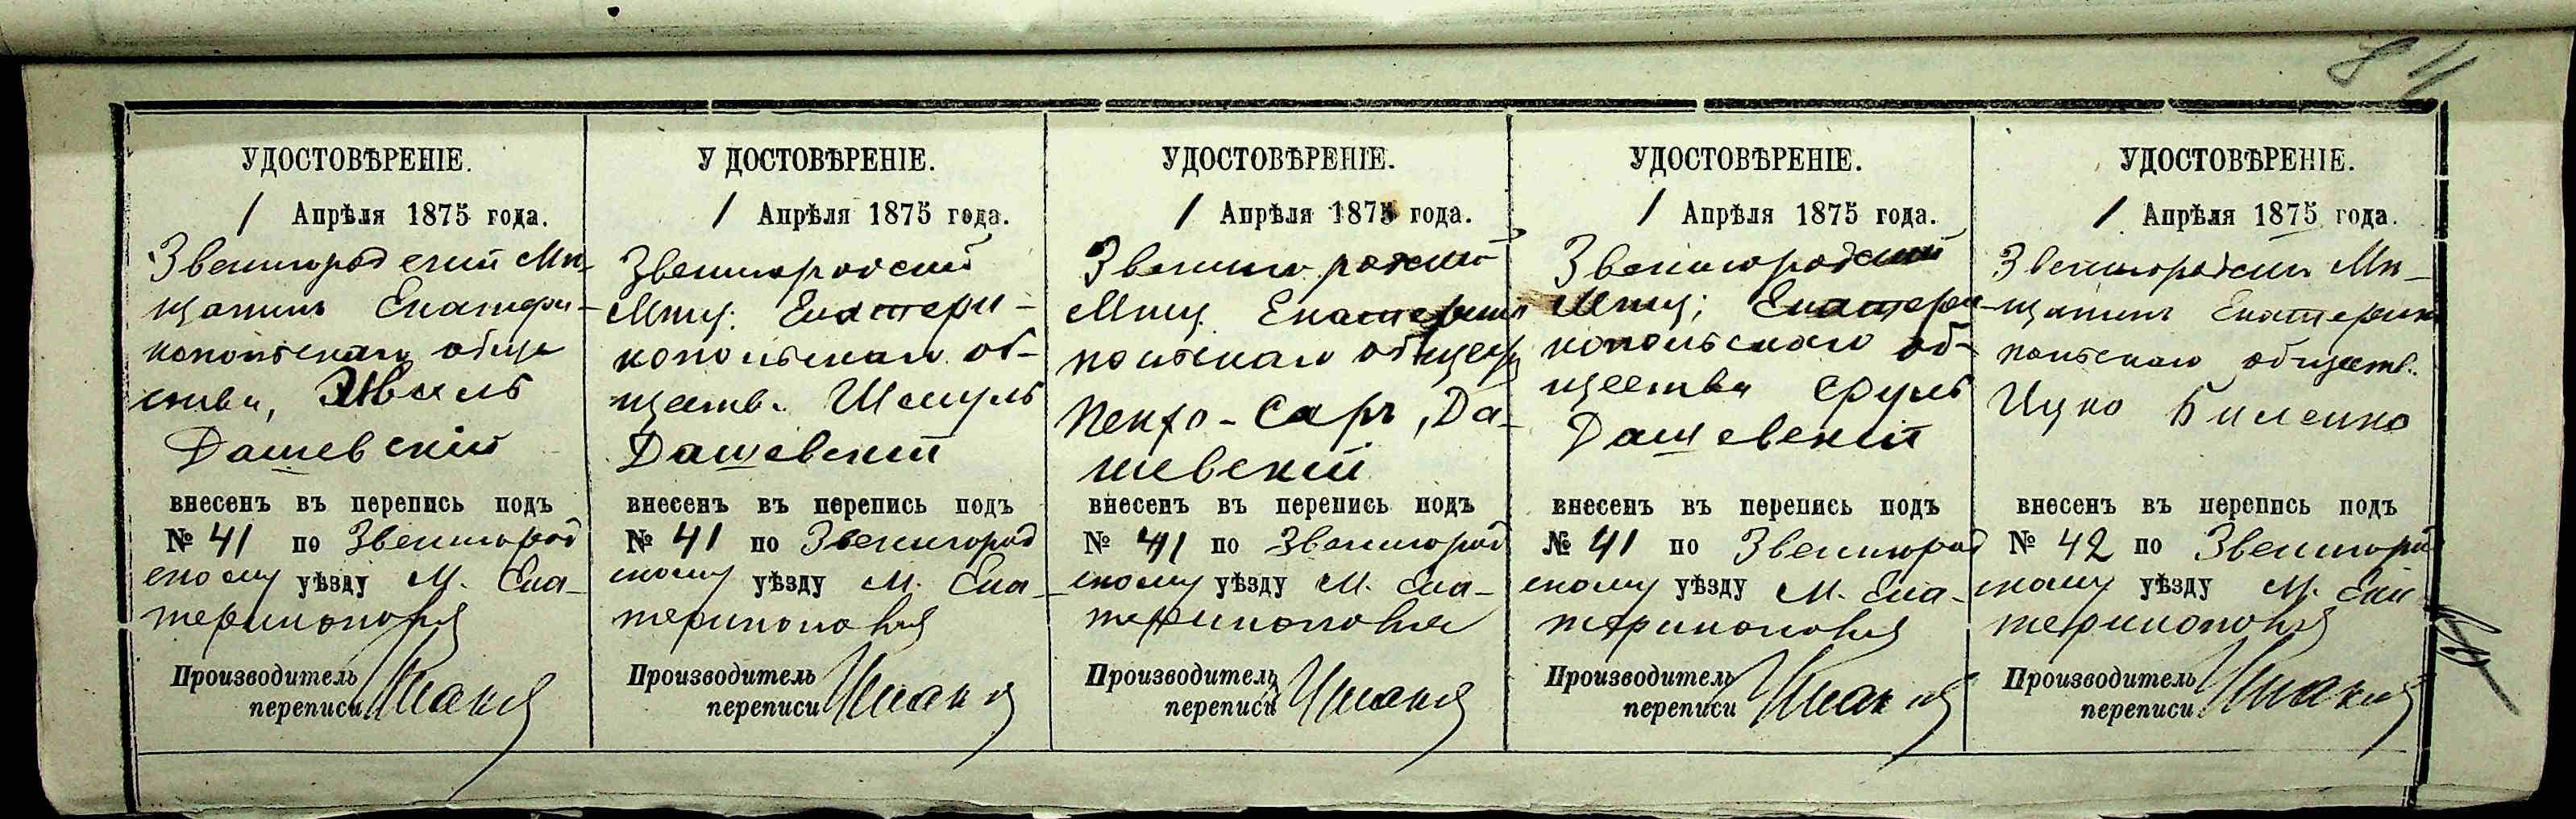 84
УДОСТОВѢРЕНІЕ.
1 Апрѣля 1875 года.
Звенигородский Мѣ-
щанинъ Екатери-
нопольскаго обще
ства,
Дашевскій
внесенъ въ перепись подъ
№ 41 по Звенигород
скому уѣзду М. Ека-
теринополя
Производитель
переписи
УДОСТОВѢРЕНІЕ.
1 Апрѣля 1875 года.
Звенигородский
Мѣщ. Екатери-
нопольскаго об-
ществ. Шмуль
Дашевский
внесенъ въ перепись подъ
№ 41 по Звенигород
скому уѣзду М. Ека-
теринополя
Производитель
переписи
УДОСТОВѢРЕНІЕ.
1 Апрѣля 1875 года.
Звенигородский
Мѣщ. Екатерино
польскаго общест
Саръ, Да-
шевскій
внесенъ въ перепись подъ
№ 41 по Звенигород
скому уѣзду М. Ека-
теринополя
Производитель
переписи
УДОСТОВѢРЕНІЕ.
1 Апрѣля 1875 года.
Звенигородский
Мѣщ; Екатери-
нопольскаго об-
щества Сруль
Дашевский
внесенъ въ перепись подъ
№ 41 по Звенигород
скому уѣзду М. Ека-
теринополя
Производитель
переписи
УДОСТОВѢРЕНІЕ.
1 Апрѣля 1875 года.
Звенигородский Мѣ-
щанинъ Екатерино
польскаго обществ.
Ицко Биленко
внесенъ въ перепись подъ
№ 42 по Звенигород
скому уѣзду М. Ека
теринополя
Производитель
переписи